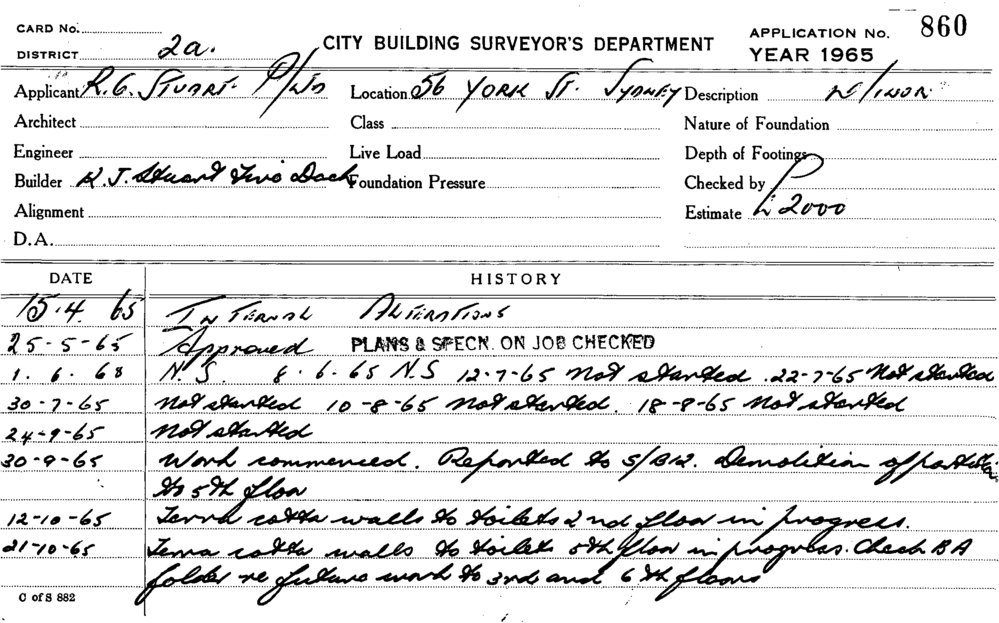 CARD No.
DISTRICT 2a.
CITY BUILDING SURVEYOR'S DEPARTMENT
APPLICATION No. 860
YEAR 1965
Applicant R.G. STUART P/LTD Location 56 YORK ST. SYDNEY Description MINOR
Architect Class Nature of Foundation
Engineer Live Load Depth of Footings
Builder R.J. Stuart Five Dock Foundation Pressure Checked by
Alignment Estimate £ 2000
D.A.
DATE HISTORY
15.4.65 INTERNAL ALTERATIONS
25-5-65 Approved PLANS & SPECN. ON JOB CHECKED
1.6.68 N.S. 8.6.65 N.S 12-7-65 Not started. 22-7-65 Not started
30-7-65 Not started 10-8-65 Not started. 18-8-65 Not started
24-9-65 Not started
30-9-65 Work commenced. Reported to S/B12. Demolition of partition
to 5th floor
12-10-65 Terra cotta walls to toilets 2nd floor in progress.
21-10-65 Terra cotta walls to toilets 5th floor in progress. Check BA
folder re future work to 3rd and 6th floors
C of S 882